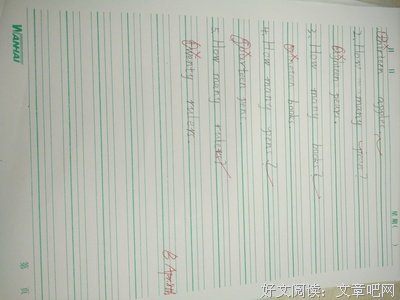 月 日
星期( )
thirteen apples.
2. How many pears?
pears.
3. How many books?
books.
4. How many pens?
thirteen pens.
5. How many rulers?
twenty rulers.
第 页
好文阅读: 文章吧网